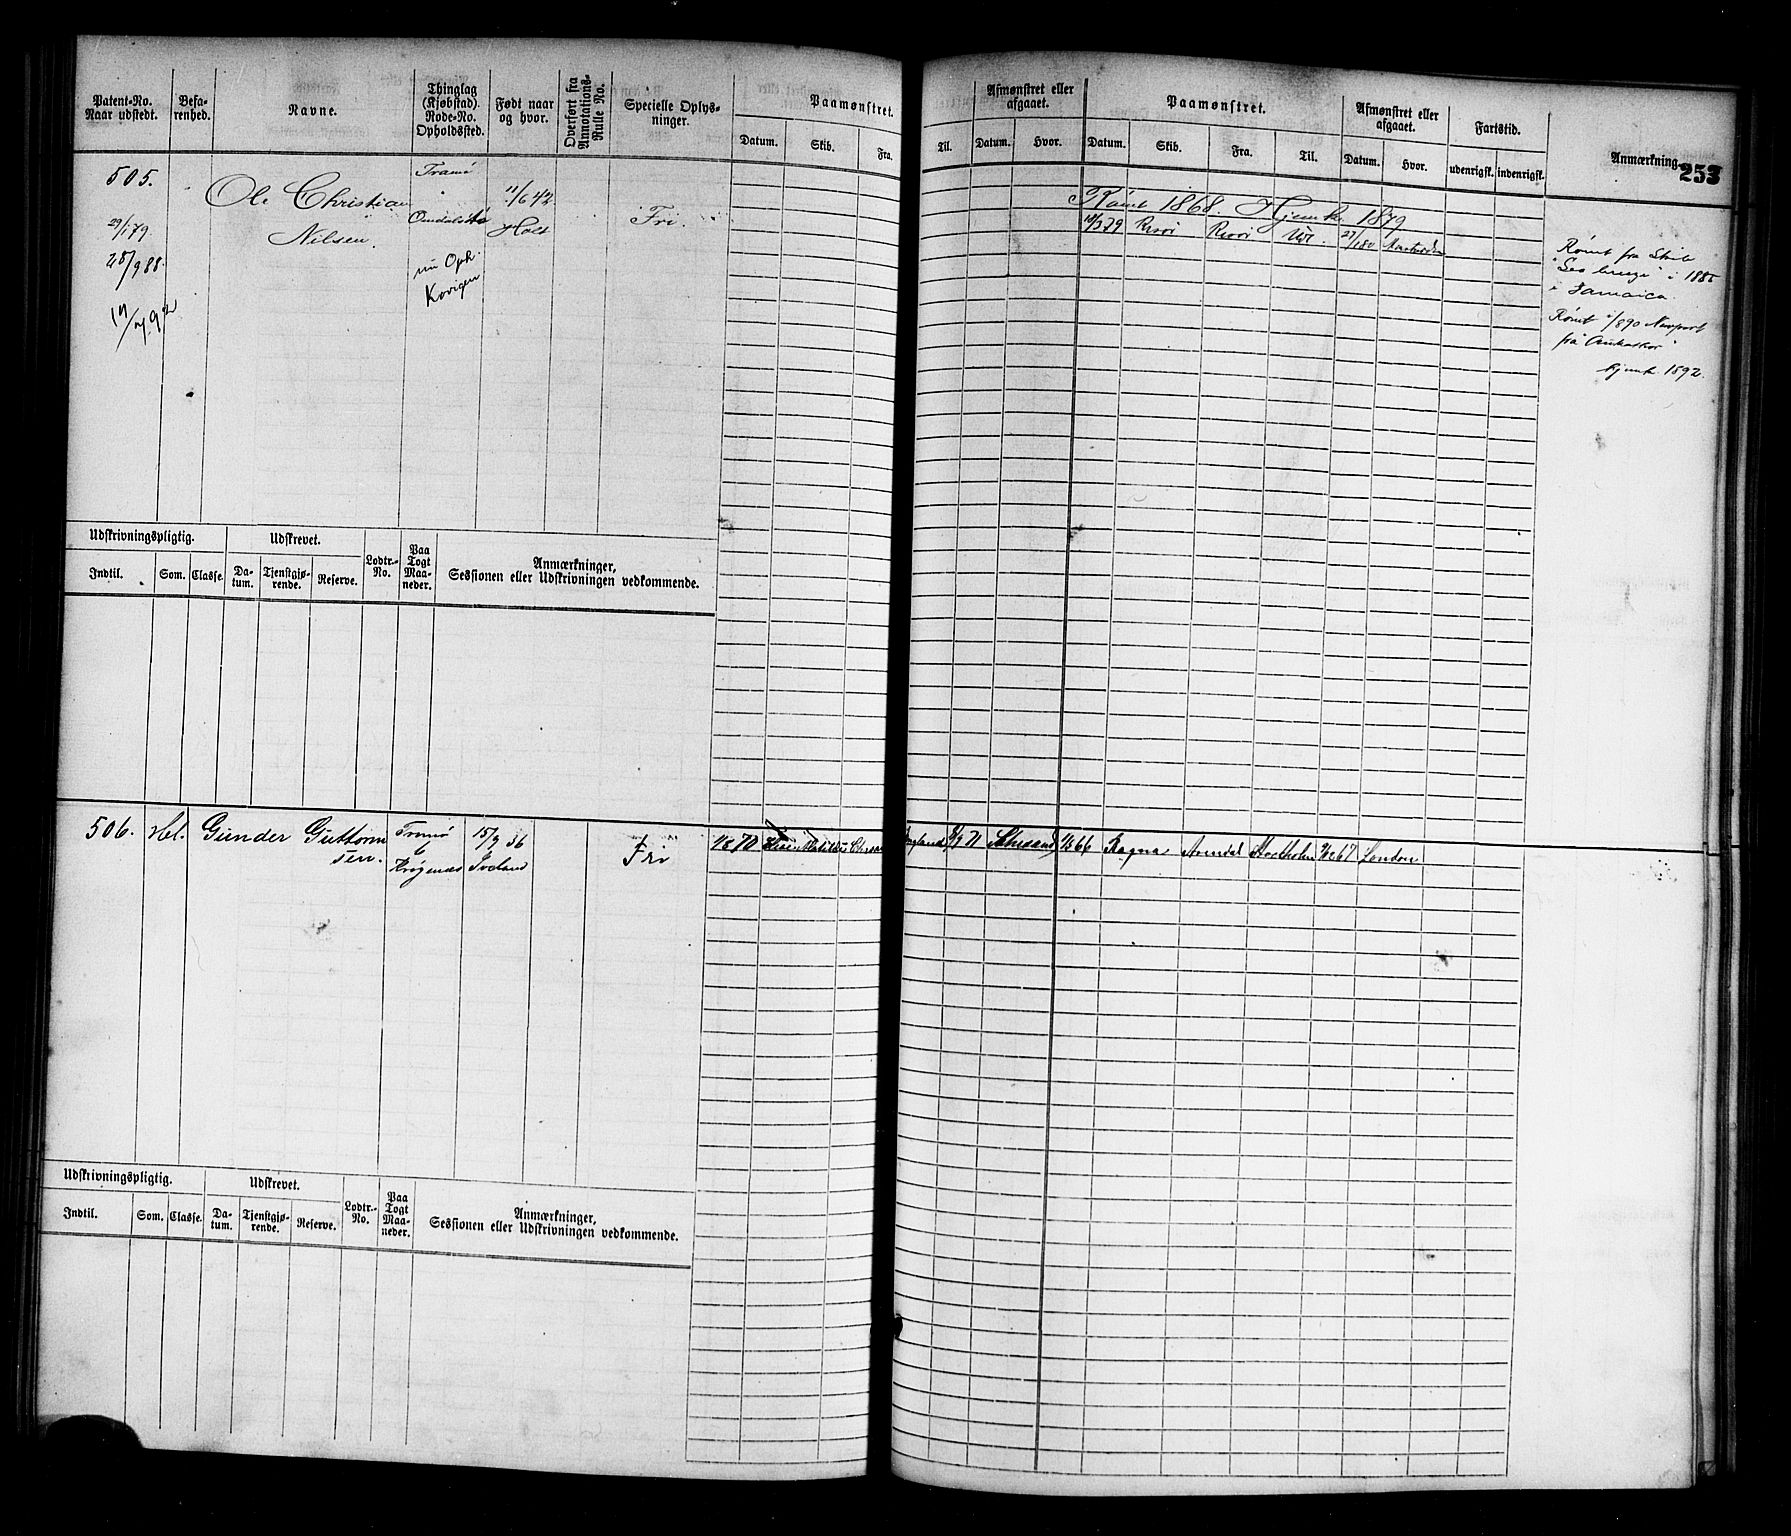 Patent-No. Naar udstedt.
Befarenhed.
Navne.
Thinglag (Kjøbstad). Rode-No. Opholdssted.
Født naar og hvor.
Overført fra Annotations-Rulle No.
Specielle Oplysninger.
Paamønstret.
Datum. Skib. Fra.
Til.
Afmønstret eller afgaaet.
Datum. Hvor.
Paamønstret.
Datum. Skib. Fra. Til.
Afmønstret eller afgaaet.
Datum. Hvor.
Fartstid.
udenrigsk. indenrigsk.
Anmærkning.
253
505.
29/1 79.
28/9 88.
Ole Christian
Nilsen.
Tromø
nu Oph.
11/6 42
Holt
Fri.
Rømt 1868. Hjemk. 1879
14/3 79 Risør Risør
27/1 80
Rømt fra Skib
i Jamaica.
Rømt /890 Newport
fra
hjemk. 1892.
Udskrivningspligtig.
Indtil. Som. Classe.
Udskrevet.
Datum. Tjenstgjørende. Reserve.
Lodtr.-No.
Paa Togt Maaneder.
Anmærkninger,
Sessionen eller Udskrivningen vedkommende.
506. Hel. Gunder Guttorm
sen.
Tromø
6
15/9 36
Iveland
Fri
1870
England 8/9 71 1866 Ragna Arendal 67 London
Udskrivningspligtig.
Indtil. Som. Classe.
Udskrevet.
Datum. Tjenstgjørende. Reserve.
Lodtr.-No.
Paa Togt Maaneder.
Anmærkninger,
Sessionen eller Udskrivningen vedkommende.